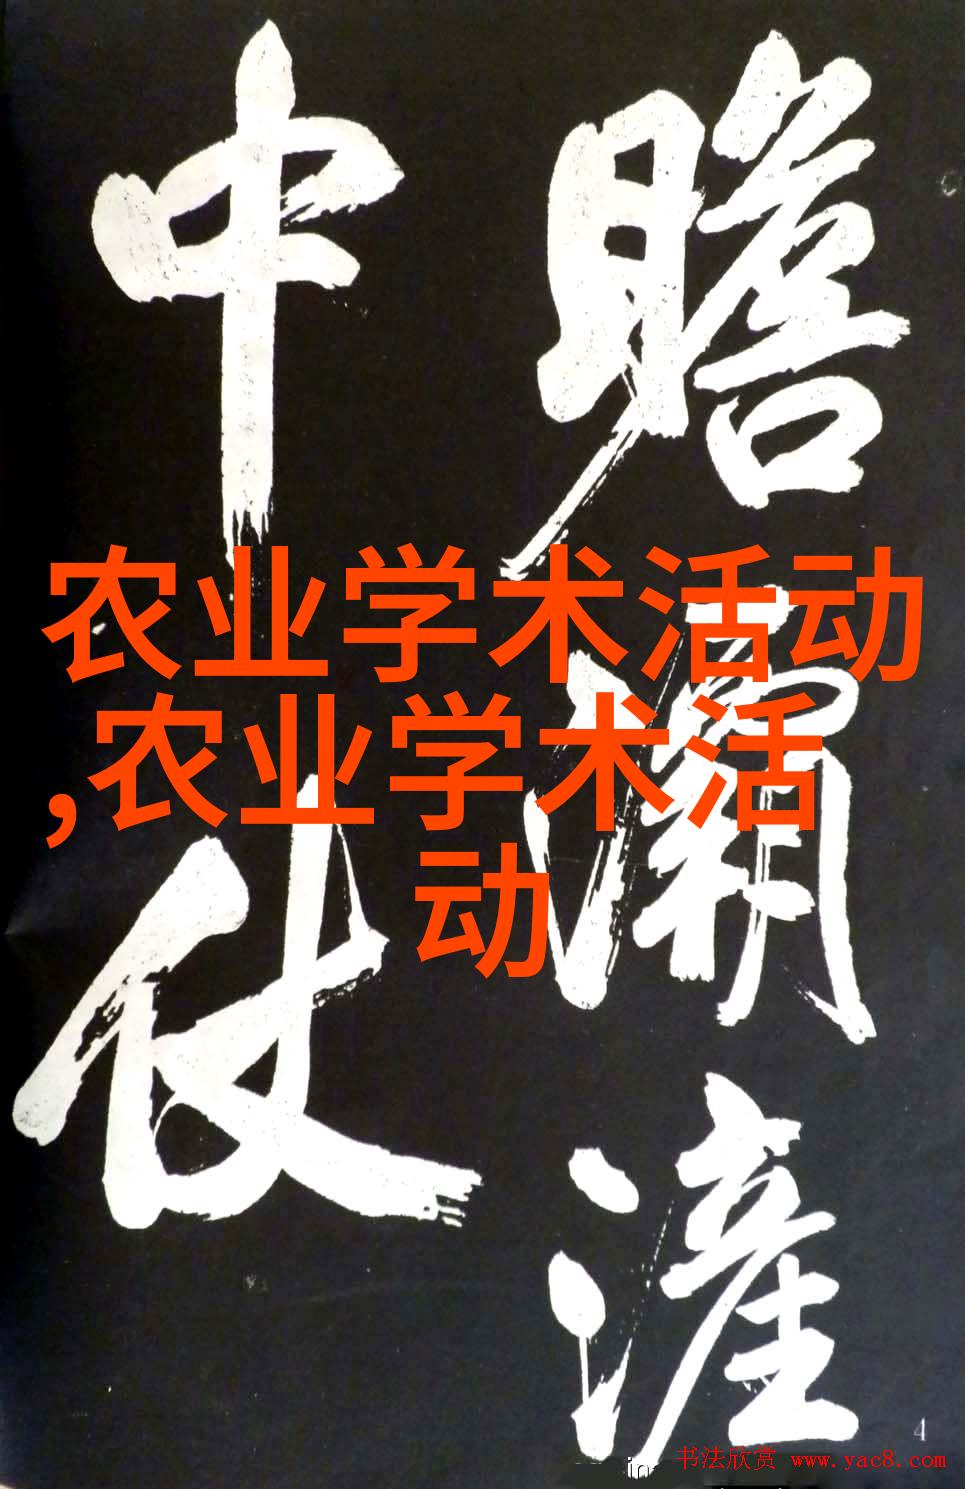 瞻灞滻
中仗
农业学术活动
,农业学术活
动
4
书法欣赏 www.yac8.com